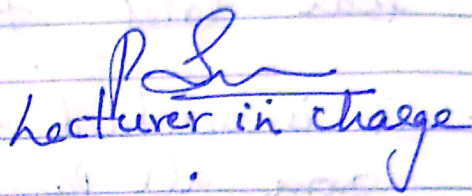 Lecturer in charge